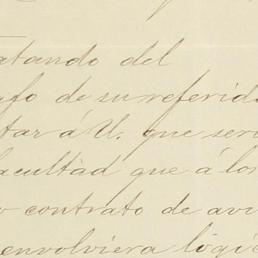 atando del
afo de su referida
tar á U. que seri
facultad que á los
o contrato de avi
envolviera lógic